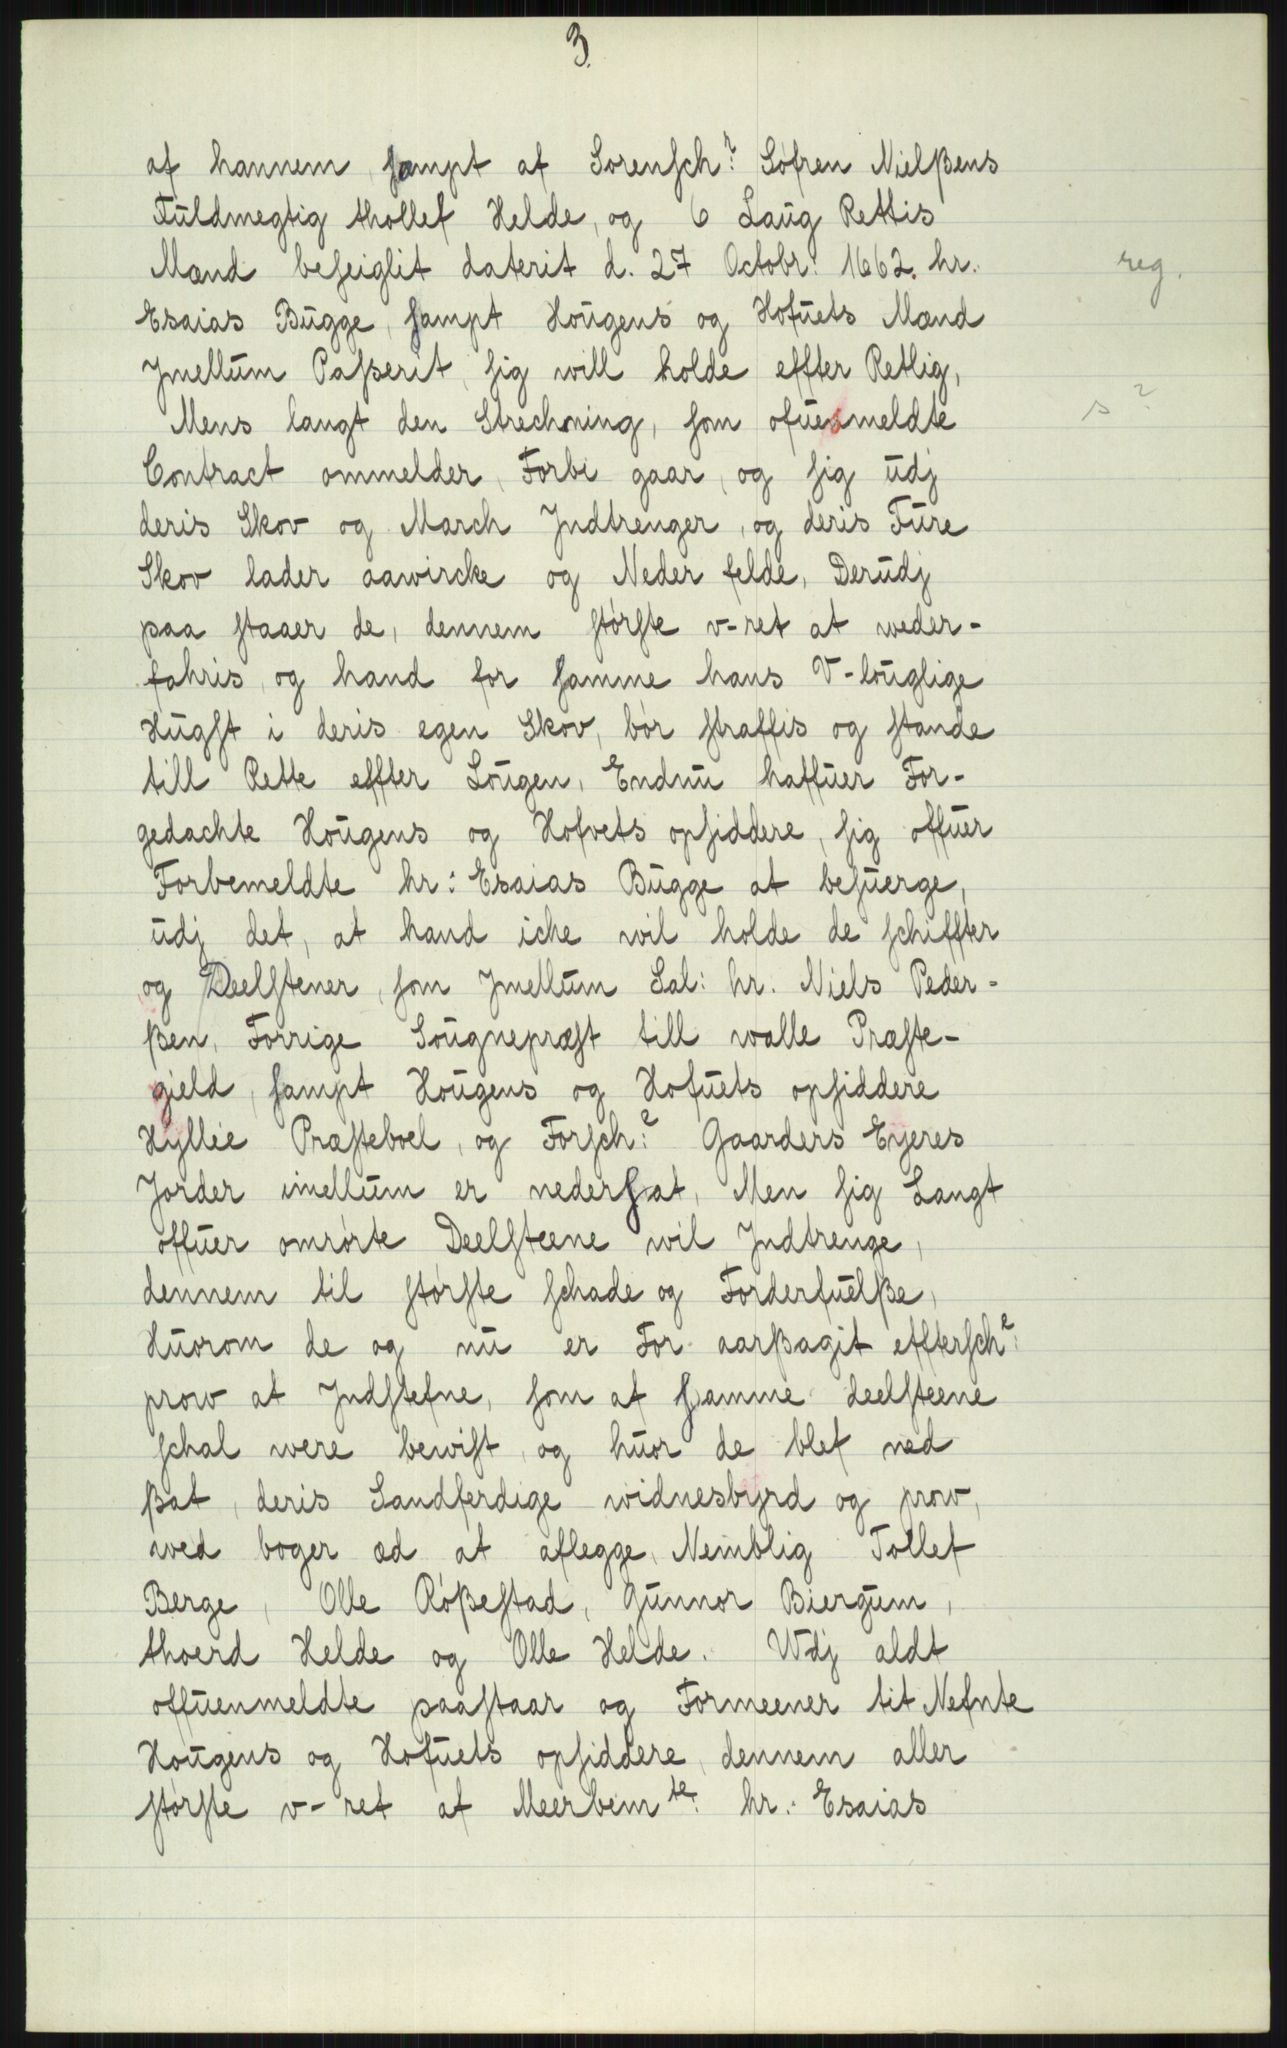 3.
af hannem, sampt af Sorensch? Søfren Nielßens
Fuldmegtig thollef Helde, og 6 Laug Rettis
Mænd beseiglit daterit d. 27 Octobr: 1662. hr.
reg.
Esaias Bugge, sampt Hougens og Hofuets Mænd
Jmellum Passerit, sig will holde effter Retlig,
Mens langt den Strechning, som ofuenmeldte
s?
Contract ommelder, Forbi gaar, og sig udj
deris Skov og March Jndtrenger, og deris Fure
Skov lader aawircke og Neder felde, Derudj
paa staaer de, dennem største v-ret at weder-
fahris, og hand for samme hans V-louglige
Hugst i deris egen Skov, bør straffis og stande
till Rette effter Lougen, Endnu haffuer For-
gedachte Hougens og Hofvets opsiddere, sig offuer
Forbemeldte hr: Esaias Bugge at besuerge,
udj det, at hand icke wil holde de schiffter
og Deelstener, som Jmellum Sal: hr. Niels Peder-
ßen, Forrige Sougnepræst till walle Præste-
gield, sampt Hougens og Hofuets opsiddere
Hyllie Præsteboel, og Forsch:e Gaarders Eyeres
Jorder imellum er nedersat, Men sig Langt
offuer omrørte Deelsteene wil Jndtrenge,
dennem til største schade og Forderfuelße,
Huorom de og nu er For aarßagit efftersch:e
prow at Jndstefne, som af samme deelsteene
schal were bewist, og huor de blef ned
ßat, deris Sandferdige widnesbyrd og prow,
wed boger æd at aflegge, Nemblig Tollef
Berge, Olle Røßestad, Gunnor Biergum,
thoerd Helde og Olle Helde. Wdj aldt
offuenmeldte paastaar og Formeener tit Nefnte
Hougens og Hofuets opsiddere, dennem aller
største v-ret af Meerbem te: hr: Esaias